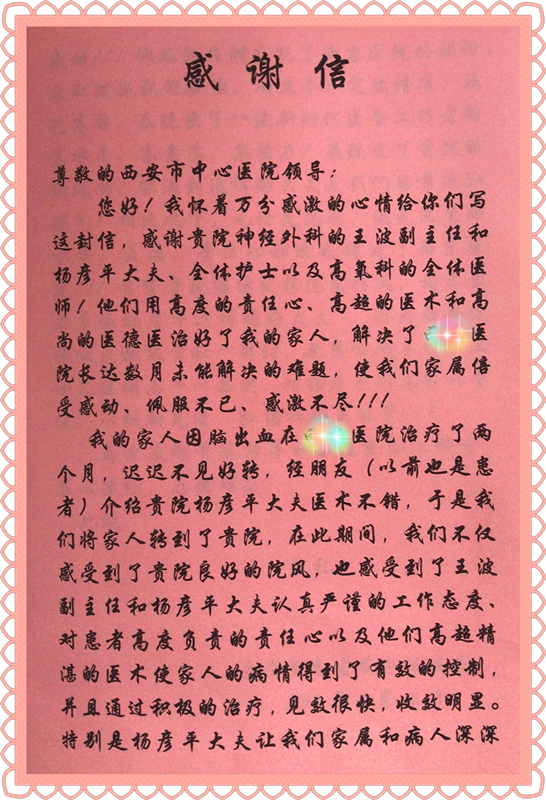 感谢信
尊敬的西安市中心医院领导：
您好！我怀着万分感激的心情给你们写
这封信，感谢贵院神经外科的王波副主任和
杨彦平大夫、全体护士以及高氧科的全体医
师！他们用高度的责任心、高超的医术和高
尚的医德医治好了我的家人，解决了医
院长达数月未能解决的难题，使我们家属倍
受感动、佩服不已、感激不尽！！！
我的家人因脑出血在医院治疗了两
个月，迟迟不见好转，经朋友（以前也是患
者）介绍贵院杨彦平大夫医术不错，于是我
们将家人转到了贵院，在此期间，我们不仅
感受到了贵院良好的院风，也感受到了王波
副主任和杨彦平大夫认真严谨的工作态度、
对患者高度负责的责任心以及他们高超精
湛的医术使家人的病情得到了有效的控制，
并且通过积极的治疗，见效很快，收效明显。
特别是杨彦平大夫让我们家属和病人深深